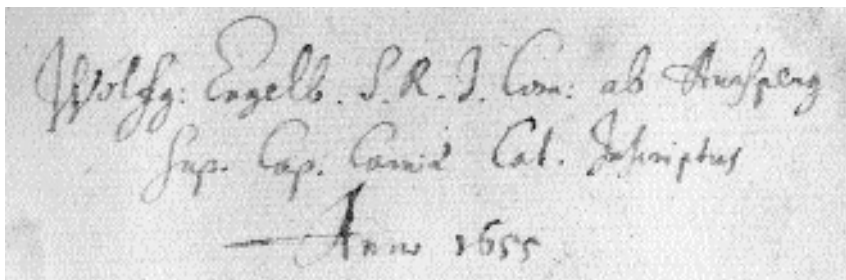 Wolfg: Engelb. S. R. I. Com: ab Aursperg
Sup. Cap. Carniæ Cat. Inscriptus
Anno 1655